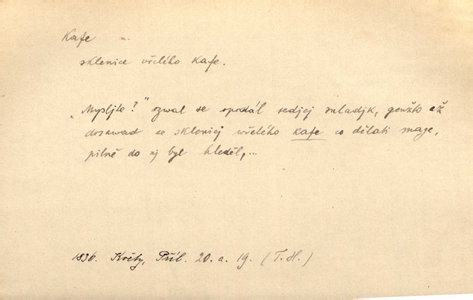 Kafe n.
sklenice vřelého kafe.
„Mysljte?" ozwal se opodál sedjcj mladjk, genžto až
dosawad se sklenicj vřelého kafe co dělati maje,
pilně do nj byl hleděl,...
1836. Květy, Příl. 20. a. 19. (T. H.)